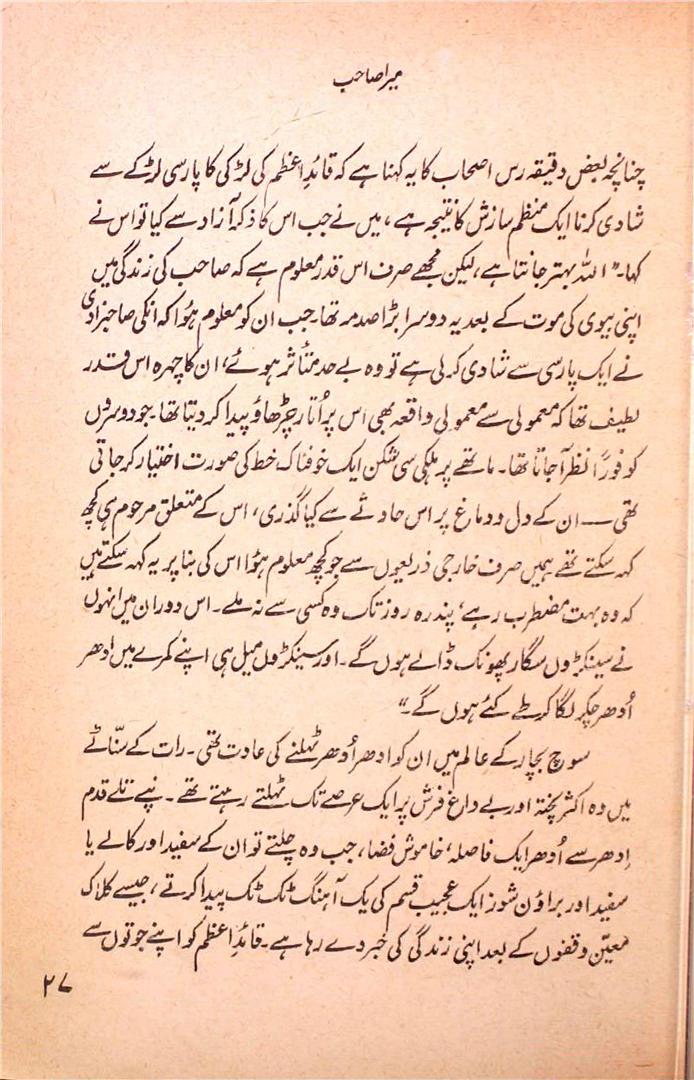 میرا صاحب
چنانچہ بعض دقیقہ رس اصحاب کا یہ کہنا ہے کہ قائدِاعظم کی لڑکی کا پارسی لڑکے سے
شادی کرنا ایک منظم سازش کا نتیجہ ہے، میں نے جب اس کا ذکر آزاد سے کیا تو اس نے
کہا۔ "اللہ بہتر جانتا ہے، لیکن مجھے صرف اس قدر معلوم ہے کہ صاحب کی زندگی میں
اپنی بیوی کی موت کے بعد یہ دوسرا بڑا صدمہ تھا۔ جب ان کو معلوم ہؤا کہ انکی صاحبزادی
نے ایک پارسی سے شادی کر لی ہے تو وہ بے حد متأثر ہوئے، ان کا چہرہ اس قدر
لطیف تھا کہ معمولی سے معمولی واقعہ بھی اس پر اُتار چڑھاؤ پیدا کر دیتا تھا۔ جو دوسروں
کو فوراً نظر آ جاتا تھا۔ ماتھے پر ہلکی سی شکن ایک خوفناک خط کی صورت اختیار کر جاتی
تھی — ان کے دل و دماغ پر اس حادثے سے کیا گذری، اس کے متعلق مرحوم ہی کچھ
کہہ سکتے تھے ہمیں صرف خارجی ذریعوں سے جو کچھ معلوم ہؤا اس کی بنا پر یہ کہہ سکتے ہیں
کہ وہ بہت مضطرب رہے، پندرہ روز تک وہ کسی سے نہ ملے۔ اس دوران میں انہوں
نے سینکڑوں سگار پھونک ڈالے ہوں گے۔ اور سینکڑوں میل ہی اپنے کمرے میں اِدھر
اُدھر چکر لگا کر طے کئے ہوں گے۔"
سوچ بچار کے عالم میں ان کو ادھر اُدھر ٹہلنے کی عادت تھی۔ رات کے سنّاٹے
میں وہ اکثر پختہ اور بے داغ فرش پر ایک عرصے تک ٹہلتے رہتے تھے۔ نپے تلے قدم
اِدھر سے اُدھر ایک فاصلہ، خاموش فضا، جب وہ چلتے تو ان کے سفید اور کالے یا
سفید اور براؤن شوز ایک عجیب قسم کی یک آہنگ ٹک ٹک پیدا کرتے، جیسے کلاک
معیّن وقفوں کے بعد اپنی زندگی کی خبر دے رہا ہے۔ قائدِاعظم کو اپنے جوتوں سے
۲۷